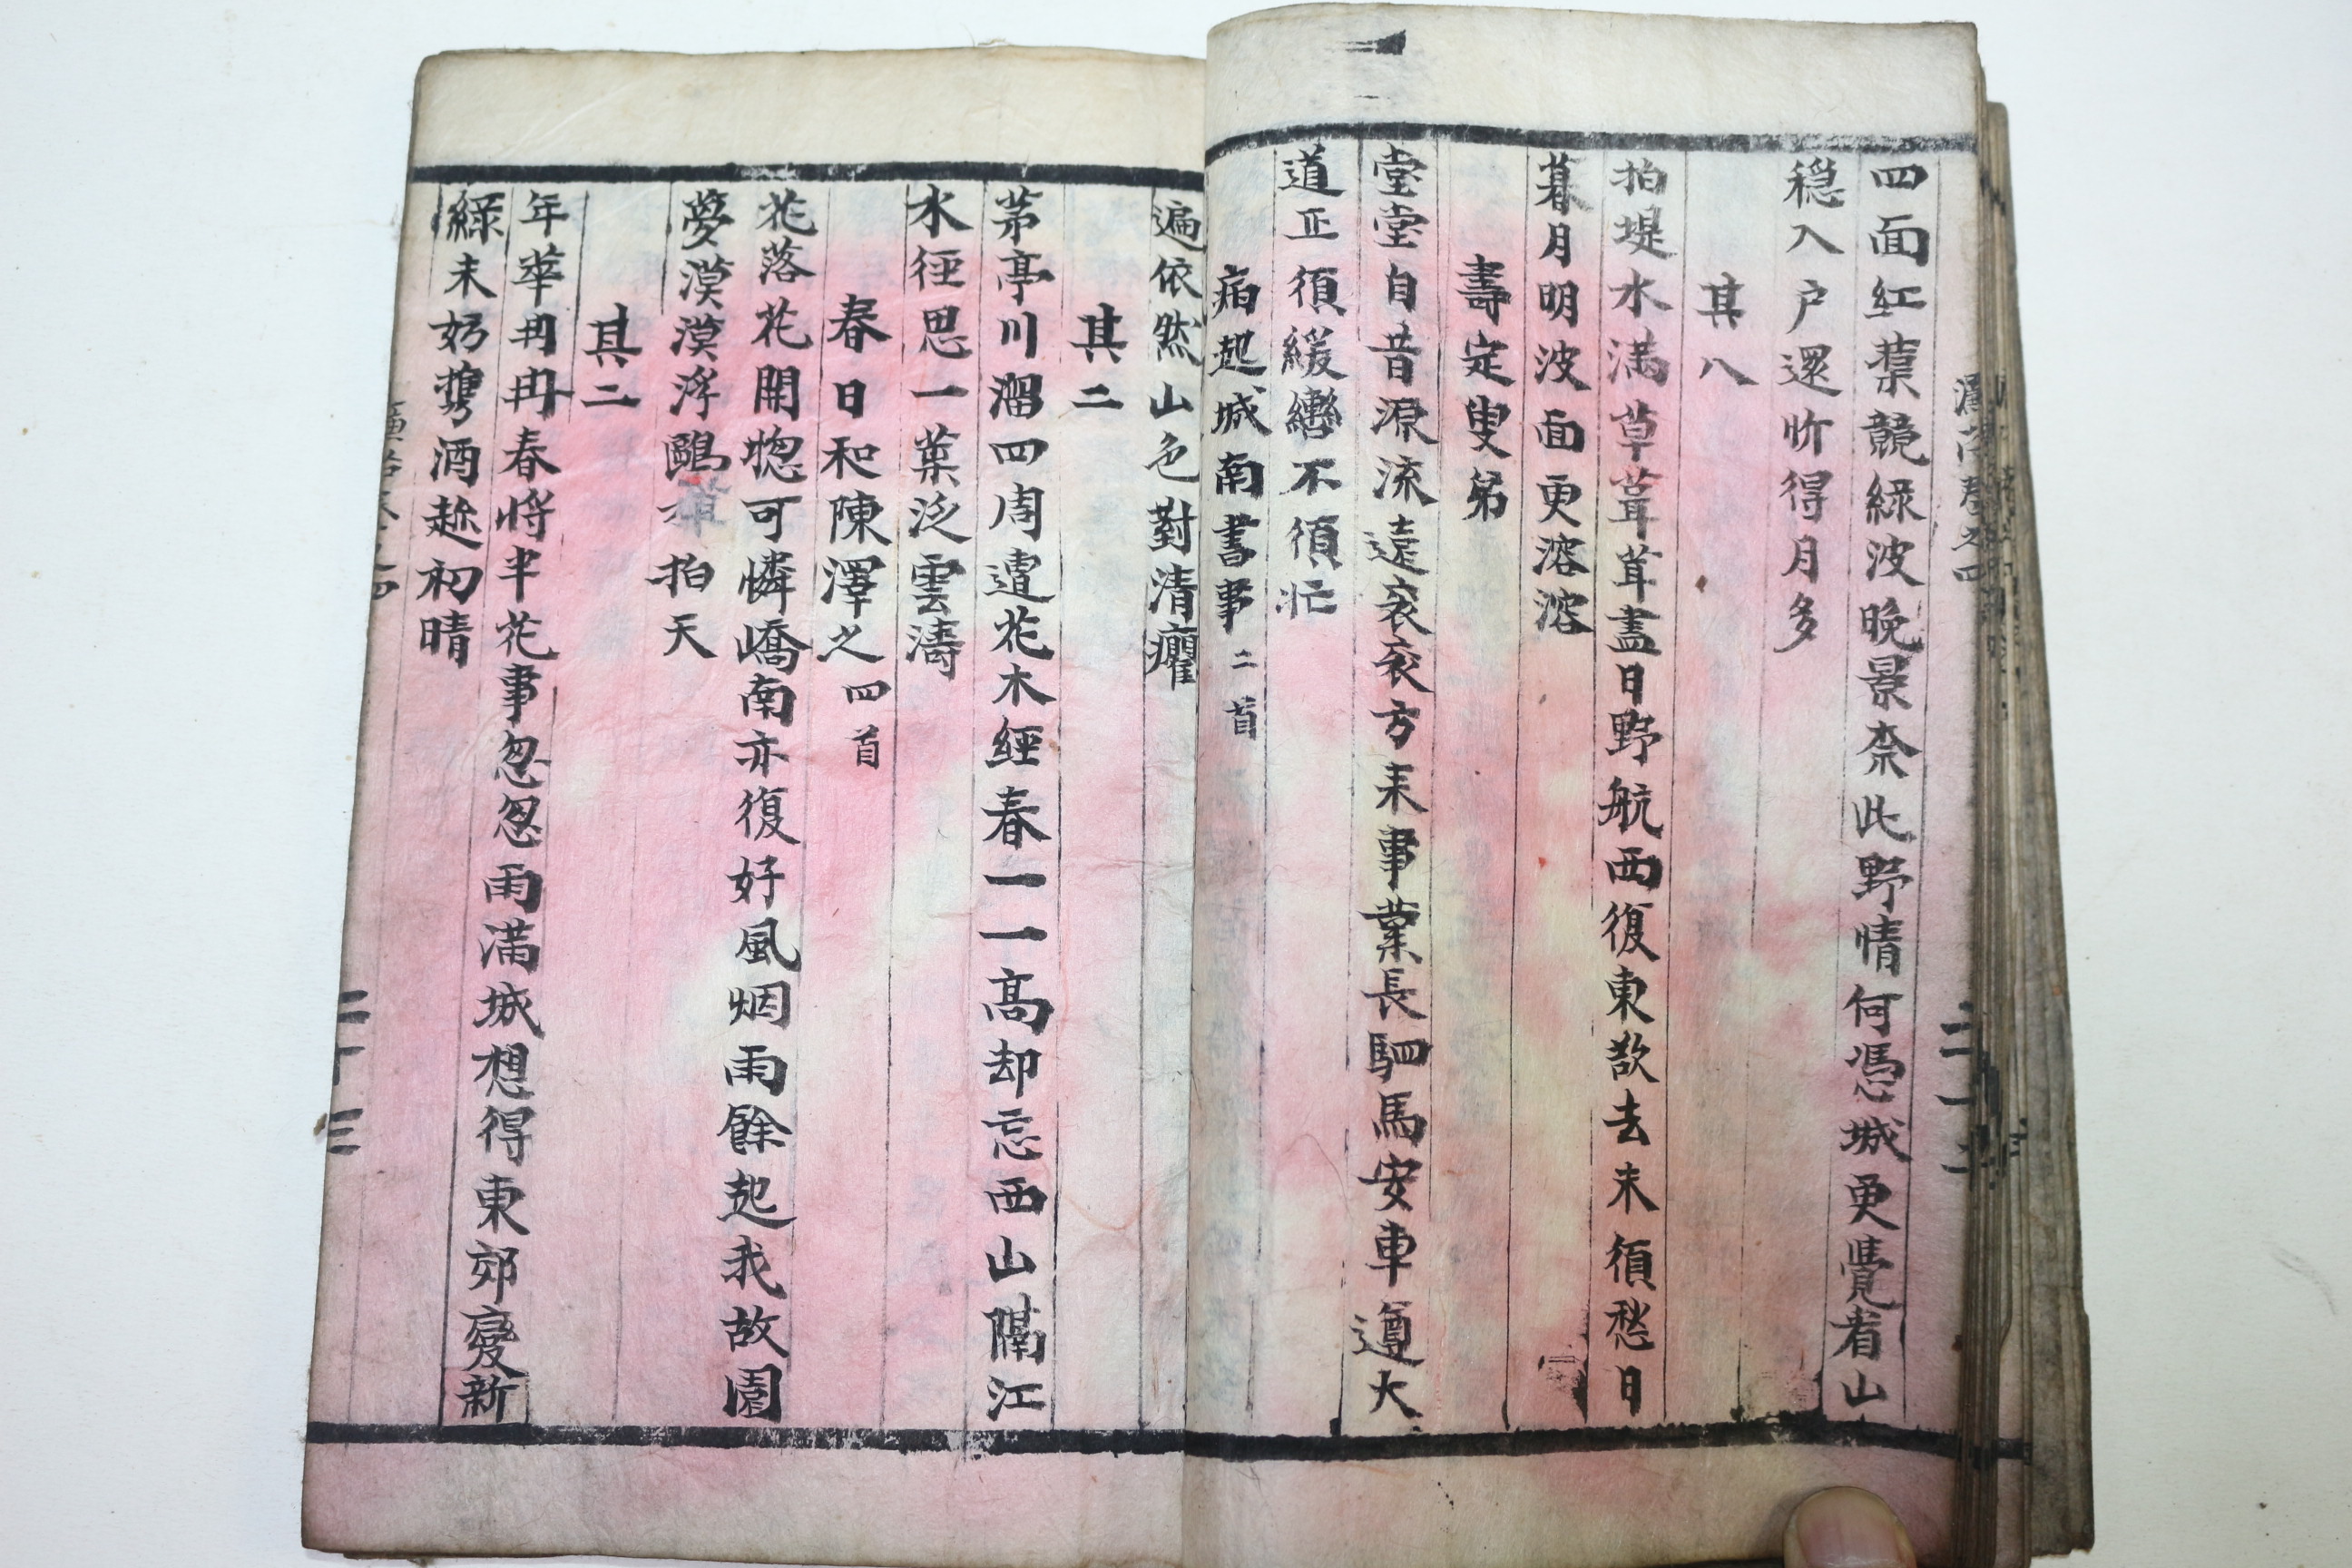 四面紅葉競緑波晚景柰此野情何憑城更覺看山
穏入户還忻得月多
其八
拍堤水滿草茸茸盡日野航西復東欲去未須愁日
暮月明波面更溶溶
壽定叟弟
堂堂自昔源流遠衮衮方来事業長駟馬安車遵大
道正須緩轡不須忙
病起城南書事二首
遍依然山色對清癯
其二
茅亭川溜四周遭花木經春一一高却忘西山隔江
水徑思一葉泛雲濤
春日和陳澤之四首
花落花開惚可憐嶠南亦復好風烟雨餘起我故園
夢漠漠浮鷗 拍天
其二
年華冉冉春將半花事忽忽雨滿城想得東郊變新
綠未妨攜酒趂初晴
二十三